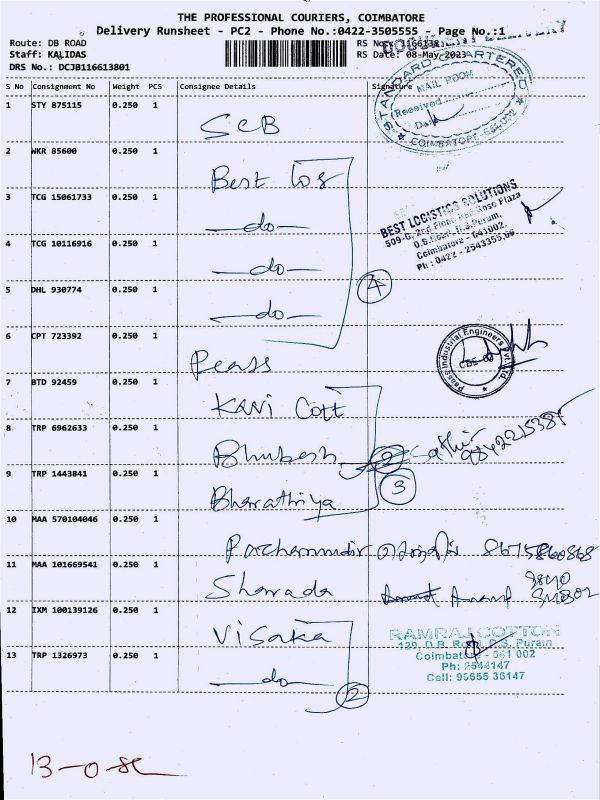 THE PROFESSIONAL COURIERS, COIMBATORE
Delivery Runsheet - PC2 - Phone No.:0422-3505555 - Page No.:1
Route: DB ROAD
Staff: KALIDAS
DRS No.: DCJB116613801
RS Date: 08-May-2023
S No Consignment No Weight PCS Consignee Details Signature
STANDARD CHARTERED
MAIL ROOM
Received
Date
COIMBATORE - 641 002
1 STY 875115 0.250 1 SCB
2 WKR 85600 0.250 1 Best log
3 TCG 15061733 0.250 1 -do-
BEST LOGISTICS SOLUTIONS
509-G, 2nd Floor, Plaza
D.B.Road, R.S.Puram,
Coimbatore - 641002.
Ph : 0422 - 2543355,66
4 TCG 10116916 0.250 1 -do-
5 DHL 930774 0.250 1 -do-
4
6 CPT 723392 0.250 1 Peass
Peass Industrial Engineers Pvt. Ltd.
CBE-
7 BTD 92459 0.250 1 KANI Cott
8 TRP 6962633 0.250 1 Bhubesh
9 TRP 1443841 0.250 1 Bharathiya
3
10 MAA 570104046 0.250 1
11 MAA 101669541 0.250 1 Sharada Anand
12 IXM 100139126 0.250 1 Visaka
RAMRAJ COTTON
129, D.B. Road, R.S. Puram
Coimbatore - 641 002
Ph: 2544147
Cell: 96655 36147
13 TRP 1326973 0.250 1 -do-
2